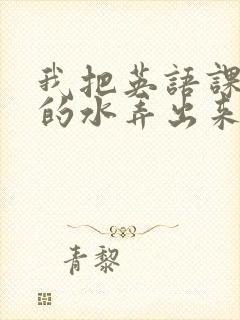 我把英語課
的水弄出來
青黎